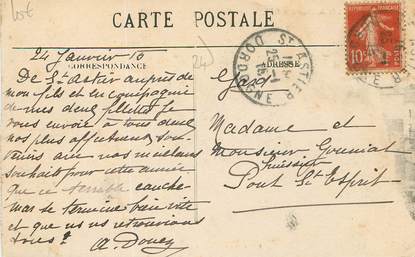 CARTE POSTALE
24 Janvier 16
CORRESPONDANCE
De St Astier auprès de
mon fils et en compagnie
de mes deux petites je
vous envoie à tous deux
nos plus affectueux sou-
venirs avec nos meilleurs
souhaits pour cette année
que ce terrible cauche-
mar se termine bien vite
et que nous nous retrouvions
tous!
A. Douey
ADRESSE
Gard
Madame et
Monsieur
Pont St Esprit
ST ASTIER
25 - 1
DORDOGNE
10